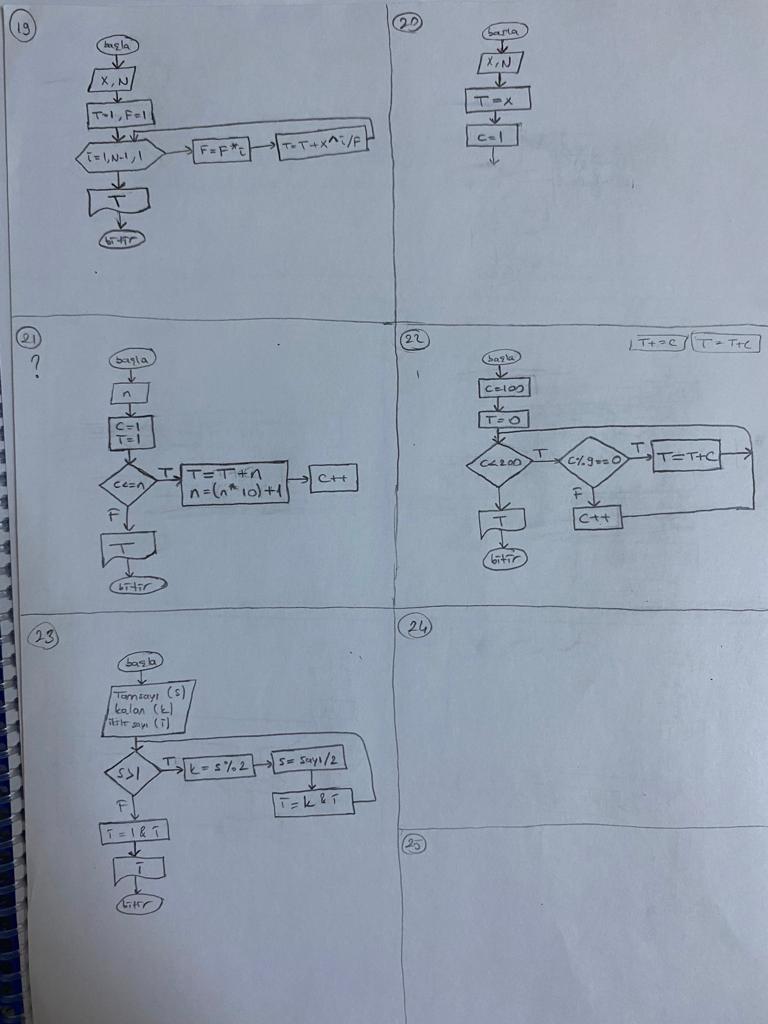 19
başla
X, N
T=1, F=1
i=1, N-1, 1
F=F*i
T=T+X^i/F
T
bitir
20
başla
X, N
T=X
C=1
21
?
başla
n
C=1
T=1
C<=n
T
T=T+n
n=(n*10)+1
C++
F
T
bitir
22
T+=C
T=T+C
başla
C=100
T=0
C<200
T
C%9==0
T
T=T+C
F
C++
T
bitir
23
başla
Tamsayı (s)
kalan (k)
(i)
s>1
T
k=s%2
s=sayı/2
i=k&i
F
i=1&i
i
bitir
24
25